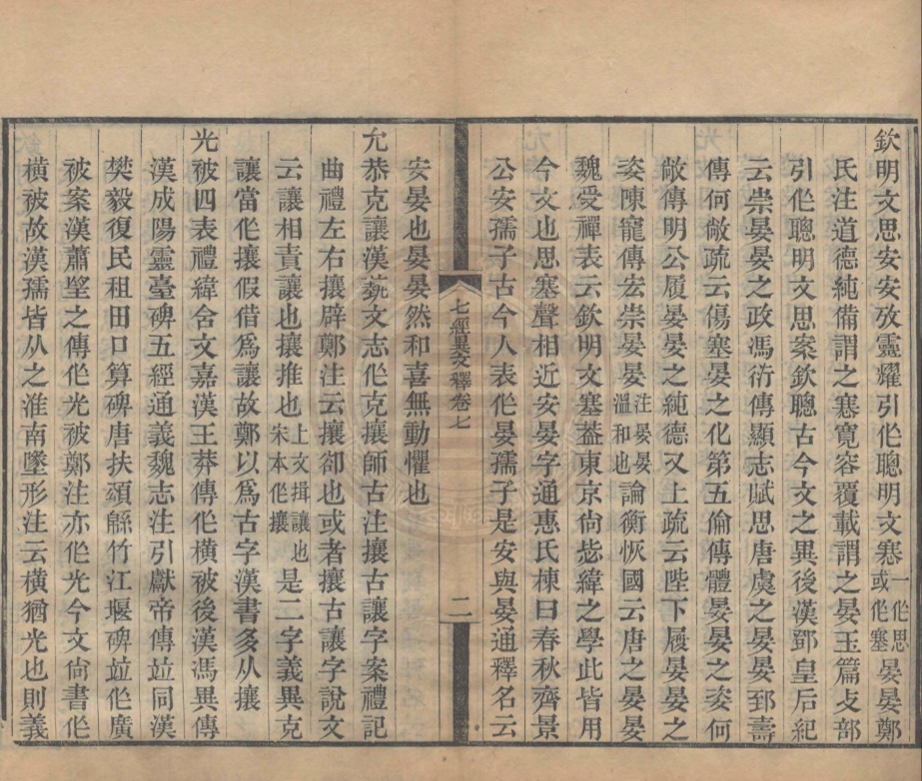 欽明文思安安攷靈耀引作聰明文塞一作思或作塞晏晏鄭
氏注道德純備謂之塞寬容覆載謂之晏玉篇攴部
引作聰明文思案欽聰古今文之異後漢鄧皇后紀
云崇晏晏之政馮衍傳顯志賦思唐虞之晏晏郅壽
傳何敞疏云傷塞晏之化第五倫傳體晏晏之姿何
敞傳明公履晏晏之純德又上疏云陛下履晏晏之
姿陳寵傳宏崇晏晏注晏晏温和也論衡恢國云唐之晏晏
魏受禪表云欽明文塞葢東京尙毖緯之學此皆用
今文也思塞聲相近安晏字通惠氏棟曰春秋齊景
公安孺子古今人表作晏孺子是安與晏通釋名云
七經異文釋卷七
二
安晏也晏晏然和喜無動懼也
允恭克讓漢藝文志作克攘師古注攘古讓字案禮記
曲禮左右攘辟鄭注云攘卻也或者攘古讓字說文
云讓相責讓也攘推也上文揖讓也宋本作攘是二字義異克
讓當作攘假借爲讓故鄭以爲古字漢書多从攘
光被四表禮緯含文嘉漢王莽傳作橫被後漢馮異傳
漢成陽靈臺碑五經通義魏志注引獻帝傳竝同漢
樊毅復民租田口算碑唐扶頌緜竹江堰碑竝作廣
被案漢蕭望之傳作光被鄭注亦作光今文尙書作
橫被故漢孺皆从之淮南墬形注云橫猶光也則義